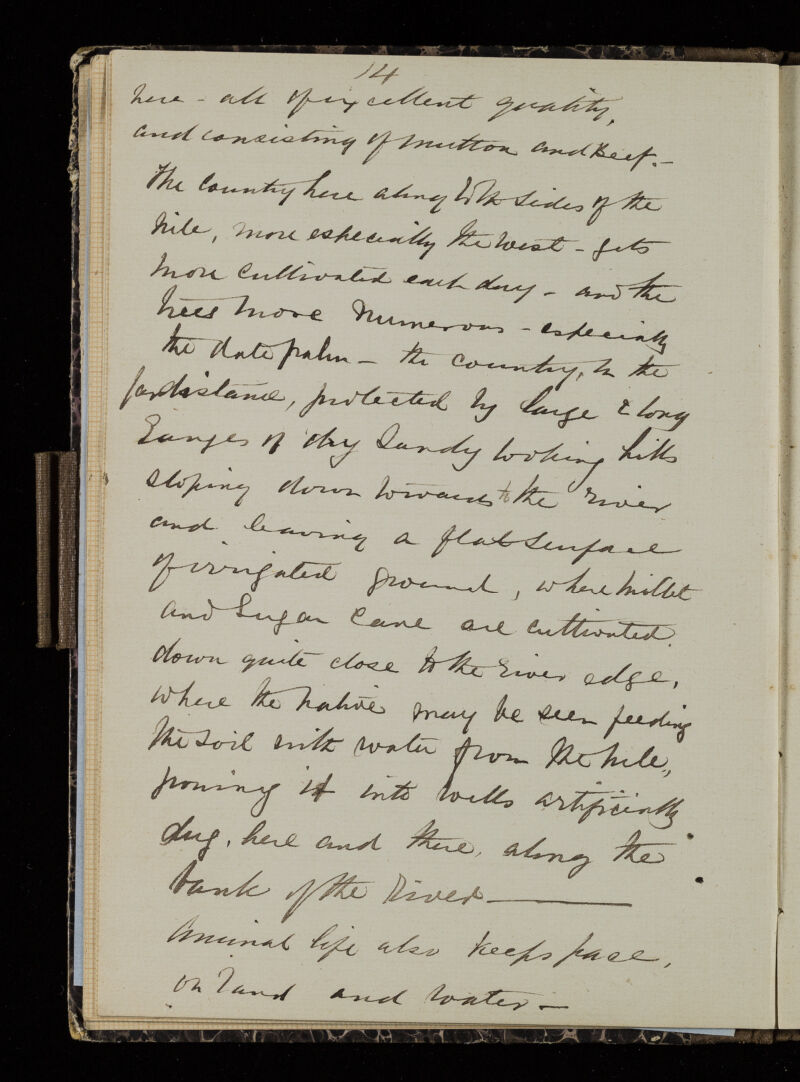 14
here - all of excellent quality,
and consisting of mutton and Beef. -
The Country here along both sides of the
Nile, more especially the West - gets
more cultivated each day - and the
trees more numerous - especially
the date palm - the country, in the
far distance, protected by large & long
Ranges of dry Sandy looking hills
sloping down towards to the River
and leaving a flat surface
of irrigated ground, where Millet
and Sugar Cane are cultivated
down quite close to the River edge,
where the Native may be seen feeding
the soil with water from the Nile,
pouring it into wells artificially
dug, here and there, along the
bank of the River -
Animal life also keeps pace,
on Land and Water -